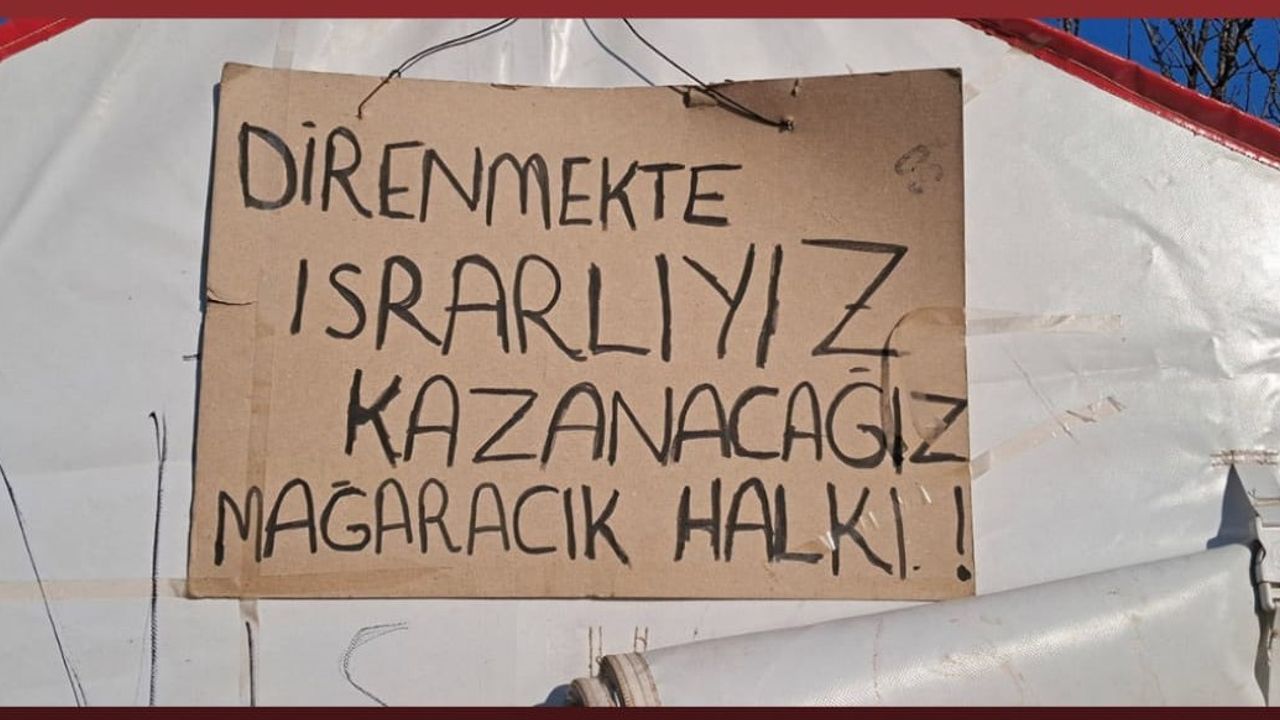 DİRENMEKTE
ISRARLIYIZ
KAZANACAĞIZ
MAĞARACIK HALKI !